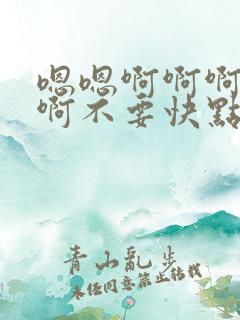 嗯嗯啊啊啊
啊不要快點
青山亂步
未經同意禁止轉載